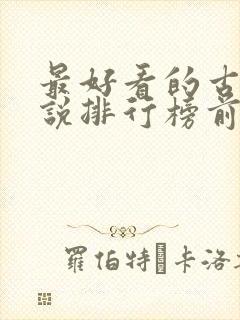 最好看的古
說排行榜前
羅伯特 卡洛